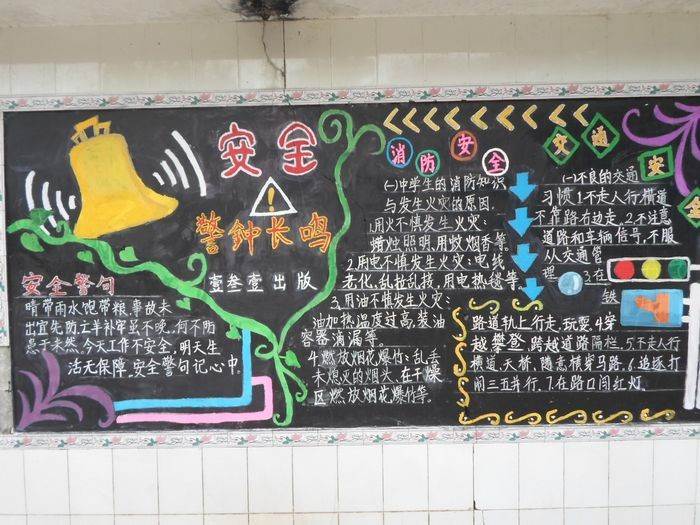 安全
警钟长鸣
壹叁壹出版
安全警句
晴带雨水饱带粮,事故未
出宜先防亡羊补牢虽不晚,何不防
患于未然,今天工作不安全,明天生
活无保障,安全警句记心中.
消防安全
(一)中学生的消防知识
与发生火灾的原因,
1.用火不慎发生火灾:
蜡烛照明,用蚊烟香等.
2.用电不慎发生火灾:电线
老化,乱拉乱接,用电热毯等.
3.用油不慎发生火灾:
油加热温度过高,装油
容器滴漏等.
4.燃放烟花爆竹:乱丢
未熄灭的烟头,在干燥
区燃放烟花爆竹等.
交通安全
(一)不良的交通
习惯1.不走人行横道
不靠路右边走,2.不注意
道路和车辆信号,不服
从交通管
理 3.在
铁
路道轨上行走,玩耍.4.穿
越攀登跨越道路隔栏.5.不走人行
横道,天桥,随意横穿马路.6.追逐打
闹三五并行.7.在路口闯红灯.